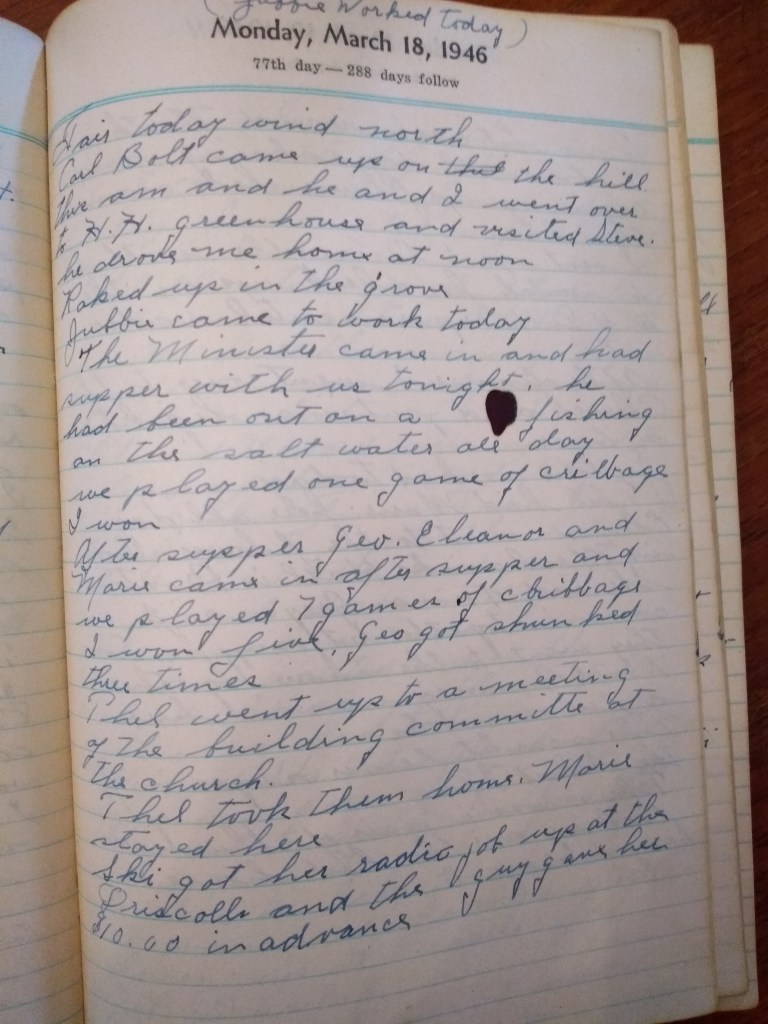 (Jubbie Worked Today)
Monday, March 18, 1946
77th day — 288 days follow
Fair today wind north
Carl Bolt came up on the the hill
this am and he and I went over
to H.H. greenhouse and visited Steve.
he drove me home at noon
Raked up in the grove
Jubbie came to work today
The Minister came in and had
supper with us tonight. he
had been out on a fishing
on the salt water all day
we played one game of cribbage
I won
After supper Geo. Eleanor and
Marie came in after supper and
we played 7 games of cribbage
I won five, Geo got skunked
three times
Thel went up to a meeting
of the building committe at
the church.
Thel took them home. Marie
stayed here
Ski got her radio job up at the
Driscolls and the guy gave her
$10.00 in advance